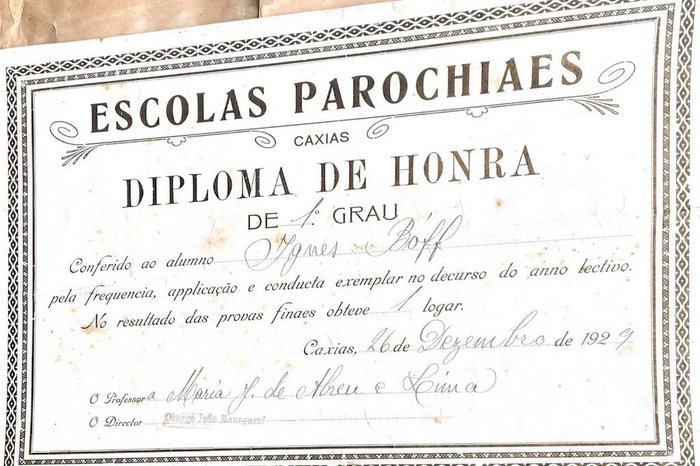 ESCOLAS PAROCHIAES
CAXIAS
DIPLOMA DE HONRA
DE 1º GRAU
Conferido ao alumno Ignes Boff
pela frequencia, applicação e conducta exemplar no decurso do anno lectivo.
No resultado das provas finaes obteve 1 logar.
Caxias, 26 de Dezembro de 1929
O Professora Maria J. de Abreu e Lima
O Director Conego João Meneguzzi